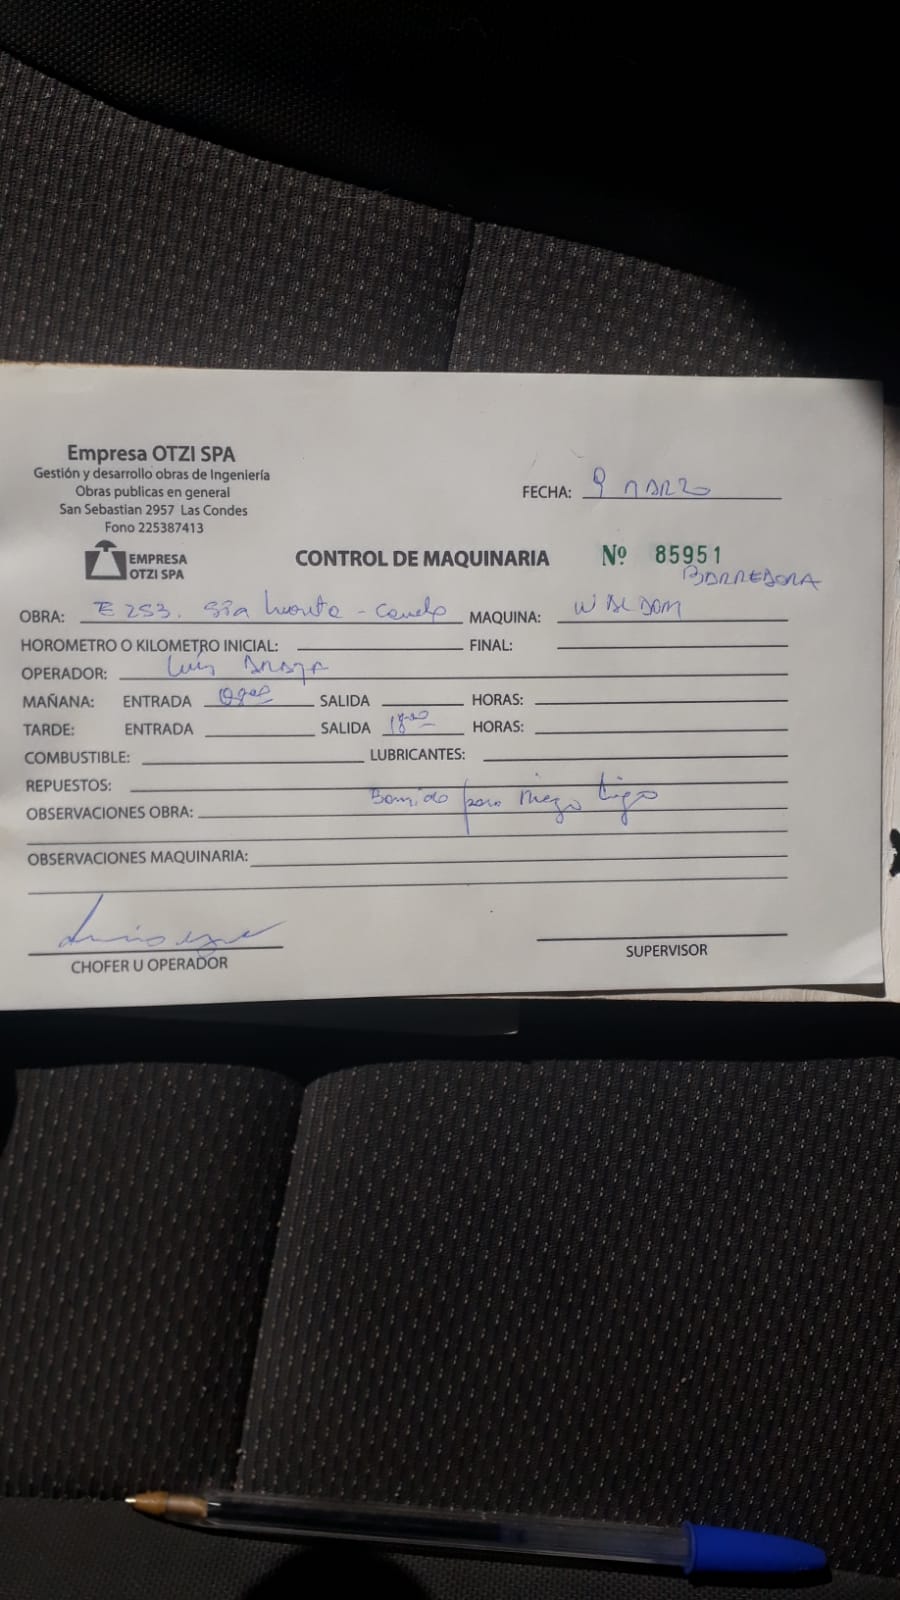 Empresa OTZI SPA
Gestión y desarrollo obras de Ingeniería
Obras publicas en general
San Sebastian 2957 Las Condes
Fono 225387413
EMPRESA
OTZI SPA
FECHA: 9 MARZO
CONTROL DE MAQUINARIA Nº 85951
BARREDORA
OBRA: E 253. MAQUINA: WALDOM
HOROMETRO O KILOMETRO INICIAL: FINAL:
OPERADOR: Luis
MAÑANA: ENTRADA SALIDA HORAS:
TARDE: ENTRADA SALIDA 18:00 HORAS:
COMBUSTIBLE: LUBRICANTES:
REPUESTOS:
OBSERVACIONES OBRA: Barrido para Riego Liga
OBSERVACIONES MAQUINARIA:
CHOFER U OPERADOR
SUPERVISOR